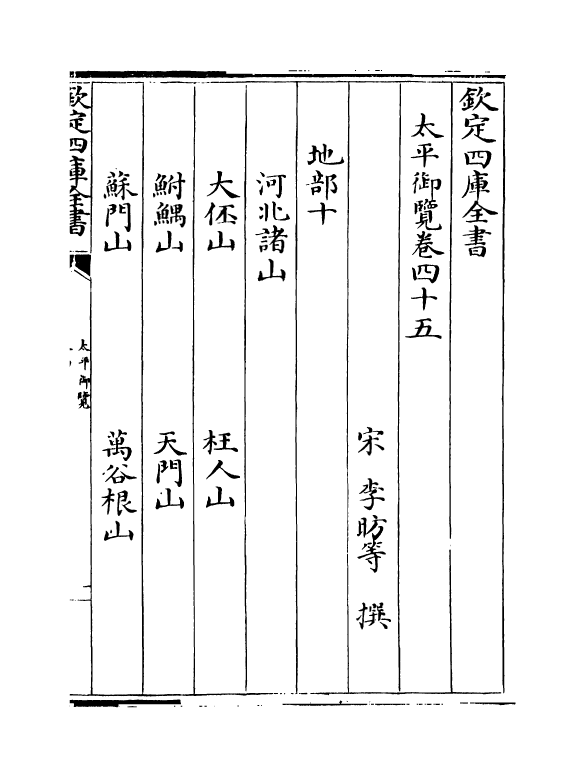 欽定四庫全書
太平御覽卷四十五
宋 李昉等 撰
地部十
河北諸山
大伾山 枉人山
鮒鰅山 天門山
蘇門山 萬谷根山
欽定四庫全書 太平御覽